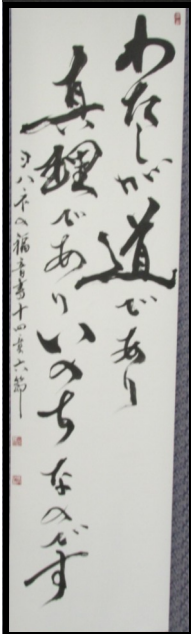 わたしが道であり
真理でありいのちなのです
ヨハネへ福音書十四章六節